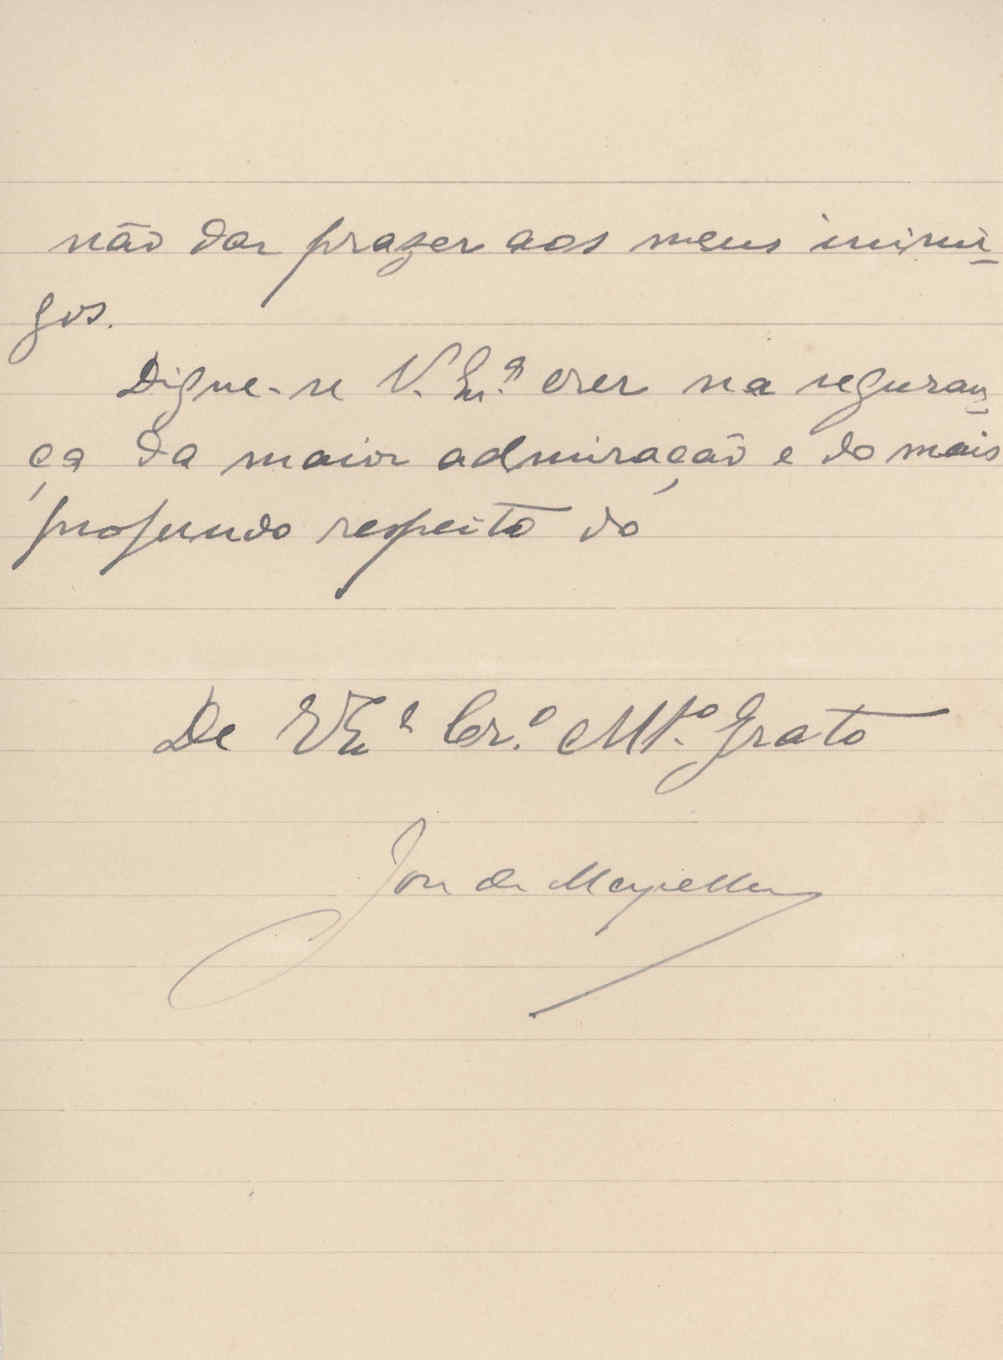 não dar prazer aos meus inimi-
gos.
Digne-se V. Ex.ª crer na seguran-
ça da maior admiração e do mais
profundo respeito do
De V Ex.ª Cr.º Mt.º Grato
José de